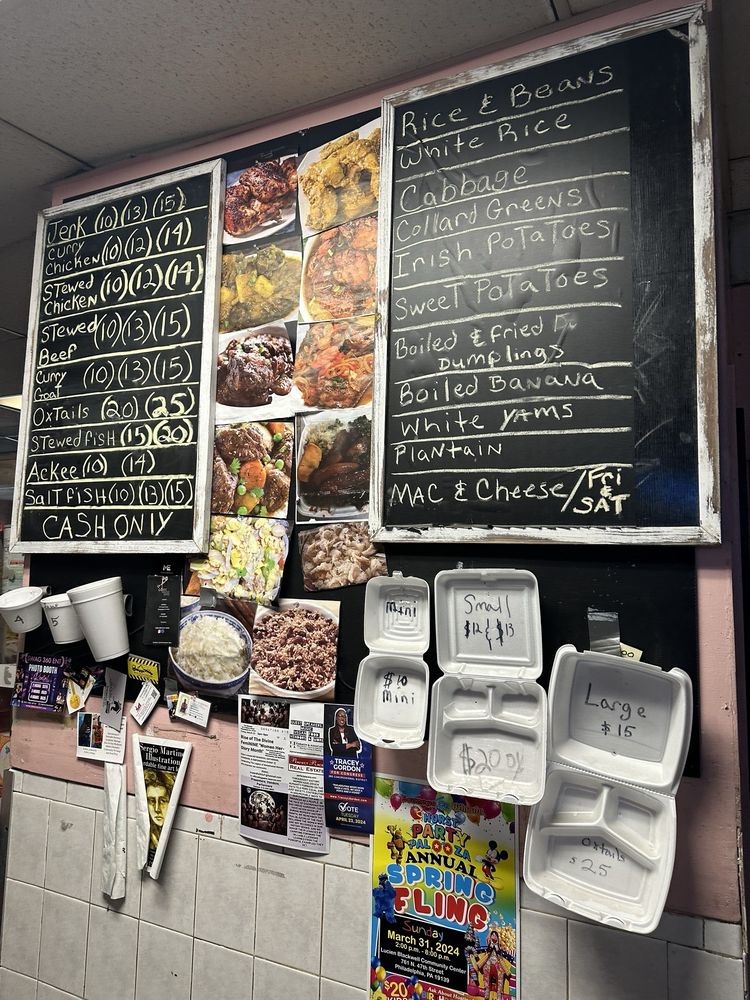 Jerk (10)(13)(15)
Curry
Chicken (10)(12)(14)
Stewed
Chicken (10)(12)(14)
Stewed (10)(13)(15)
Beef
Curry (10)(13)(15)
Goat
OxTails (20) (25)
Stewed fish (15)(20)
Ackee (10) (14)
Saltfish (10)(13)(15)
CASH ONLY
Rice & Beans
White Rice
Cabbage
Collard Greens
Irish PoTaToes
Sweet PoTaToes
Boiled & fried D.
Dumplings
Boiled Banana
White YAMS
Plantain
MAC & Cheese/Fri
&
SAT
4
5
mini
$10
mini
Small
$12 & $13
$20 ox
Large
$15
oxtails
$25
SWAG 360 ENT
PHOTO BOOTH
Sergio Martin
Illustration
Rise of The Divine
FemININE "Women Her
Story Month"
Real Estate
TRACEY
GORDON
FOR CONGRESS
VOTE
TUESDAY
APRIL 23, 2024
PARTY
PALOOZA
ANNUAL
SPRING
FLING
Sunday
March 31, 2024
2:00 p.m. - 8:00 p.m.
Lucien Blackwell Community
Center
761 N. 47th Street
Philadelphia, PA 19139
$20